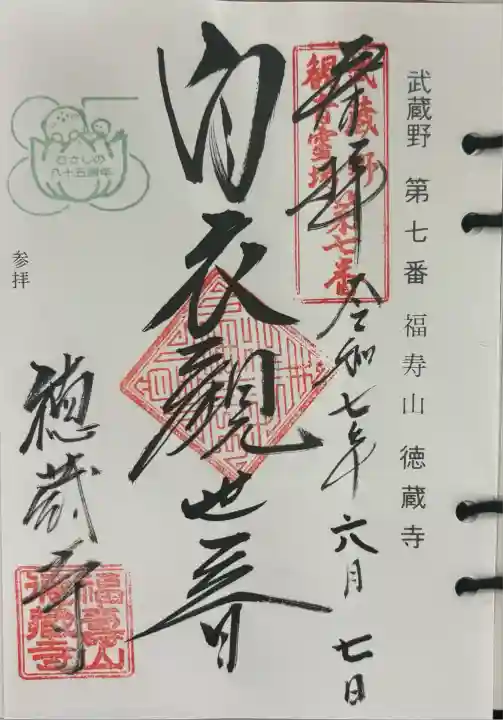 武蔵野 第七番 福寿山 徳蔵寺
武蔵野
観音霊場第七番
奉拝
令和七年六月七日
白衣観世音
むさしの
八十五周年
参拝
徳蔵寺
福壽山
徳蔵寺